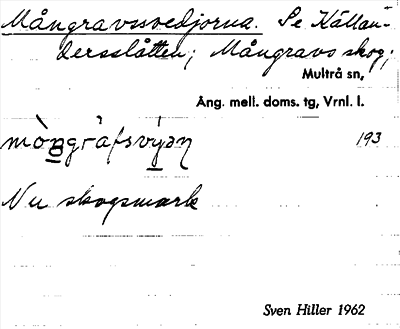 Mångravssvedjorna. Se Källan-
dersslåtten; Mångravs skog;
Multrå sn,
Ång. mell. doms. tg, Vrnl. l.
mòngràfsvýən 193
Nu skogsmark
Sven Hiller 1962